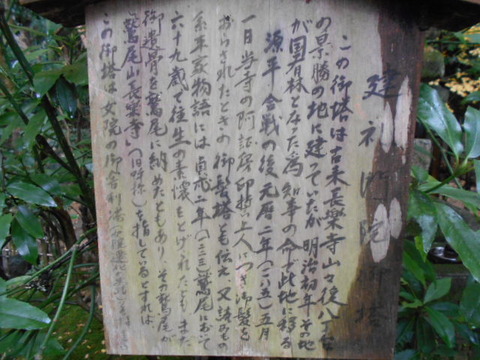 建礼門院御塔
この御塔は古来長樂寺山々後八丁台
の景勝の地に建っていたが明治初年その地
が国有林となった為知事の命で此地に移る
源平合戦の後元暦二年(一一八五)五月
一日当寺の阿証房印誓上人につき御髪を
おろされたときの御髪塔とも伝え又諸本の
系平家物語には貞応二年(一二二三)鷲尾において
六十九歳で往生の素懐をとげられたとも また
御遺骨を鷲尾に納めたともあり、その鷲尾が
鷲尾山長楽寺(旧呼称)を指しているとすれば
この御塔は女院の御舎利塔